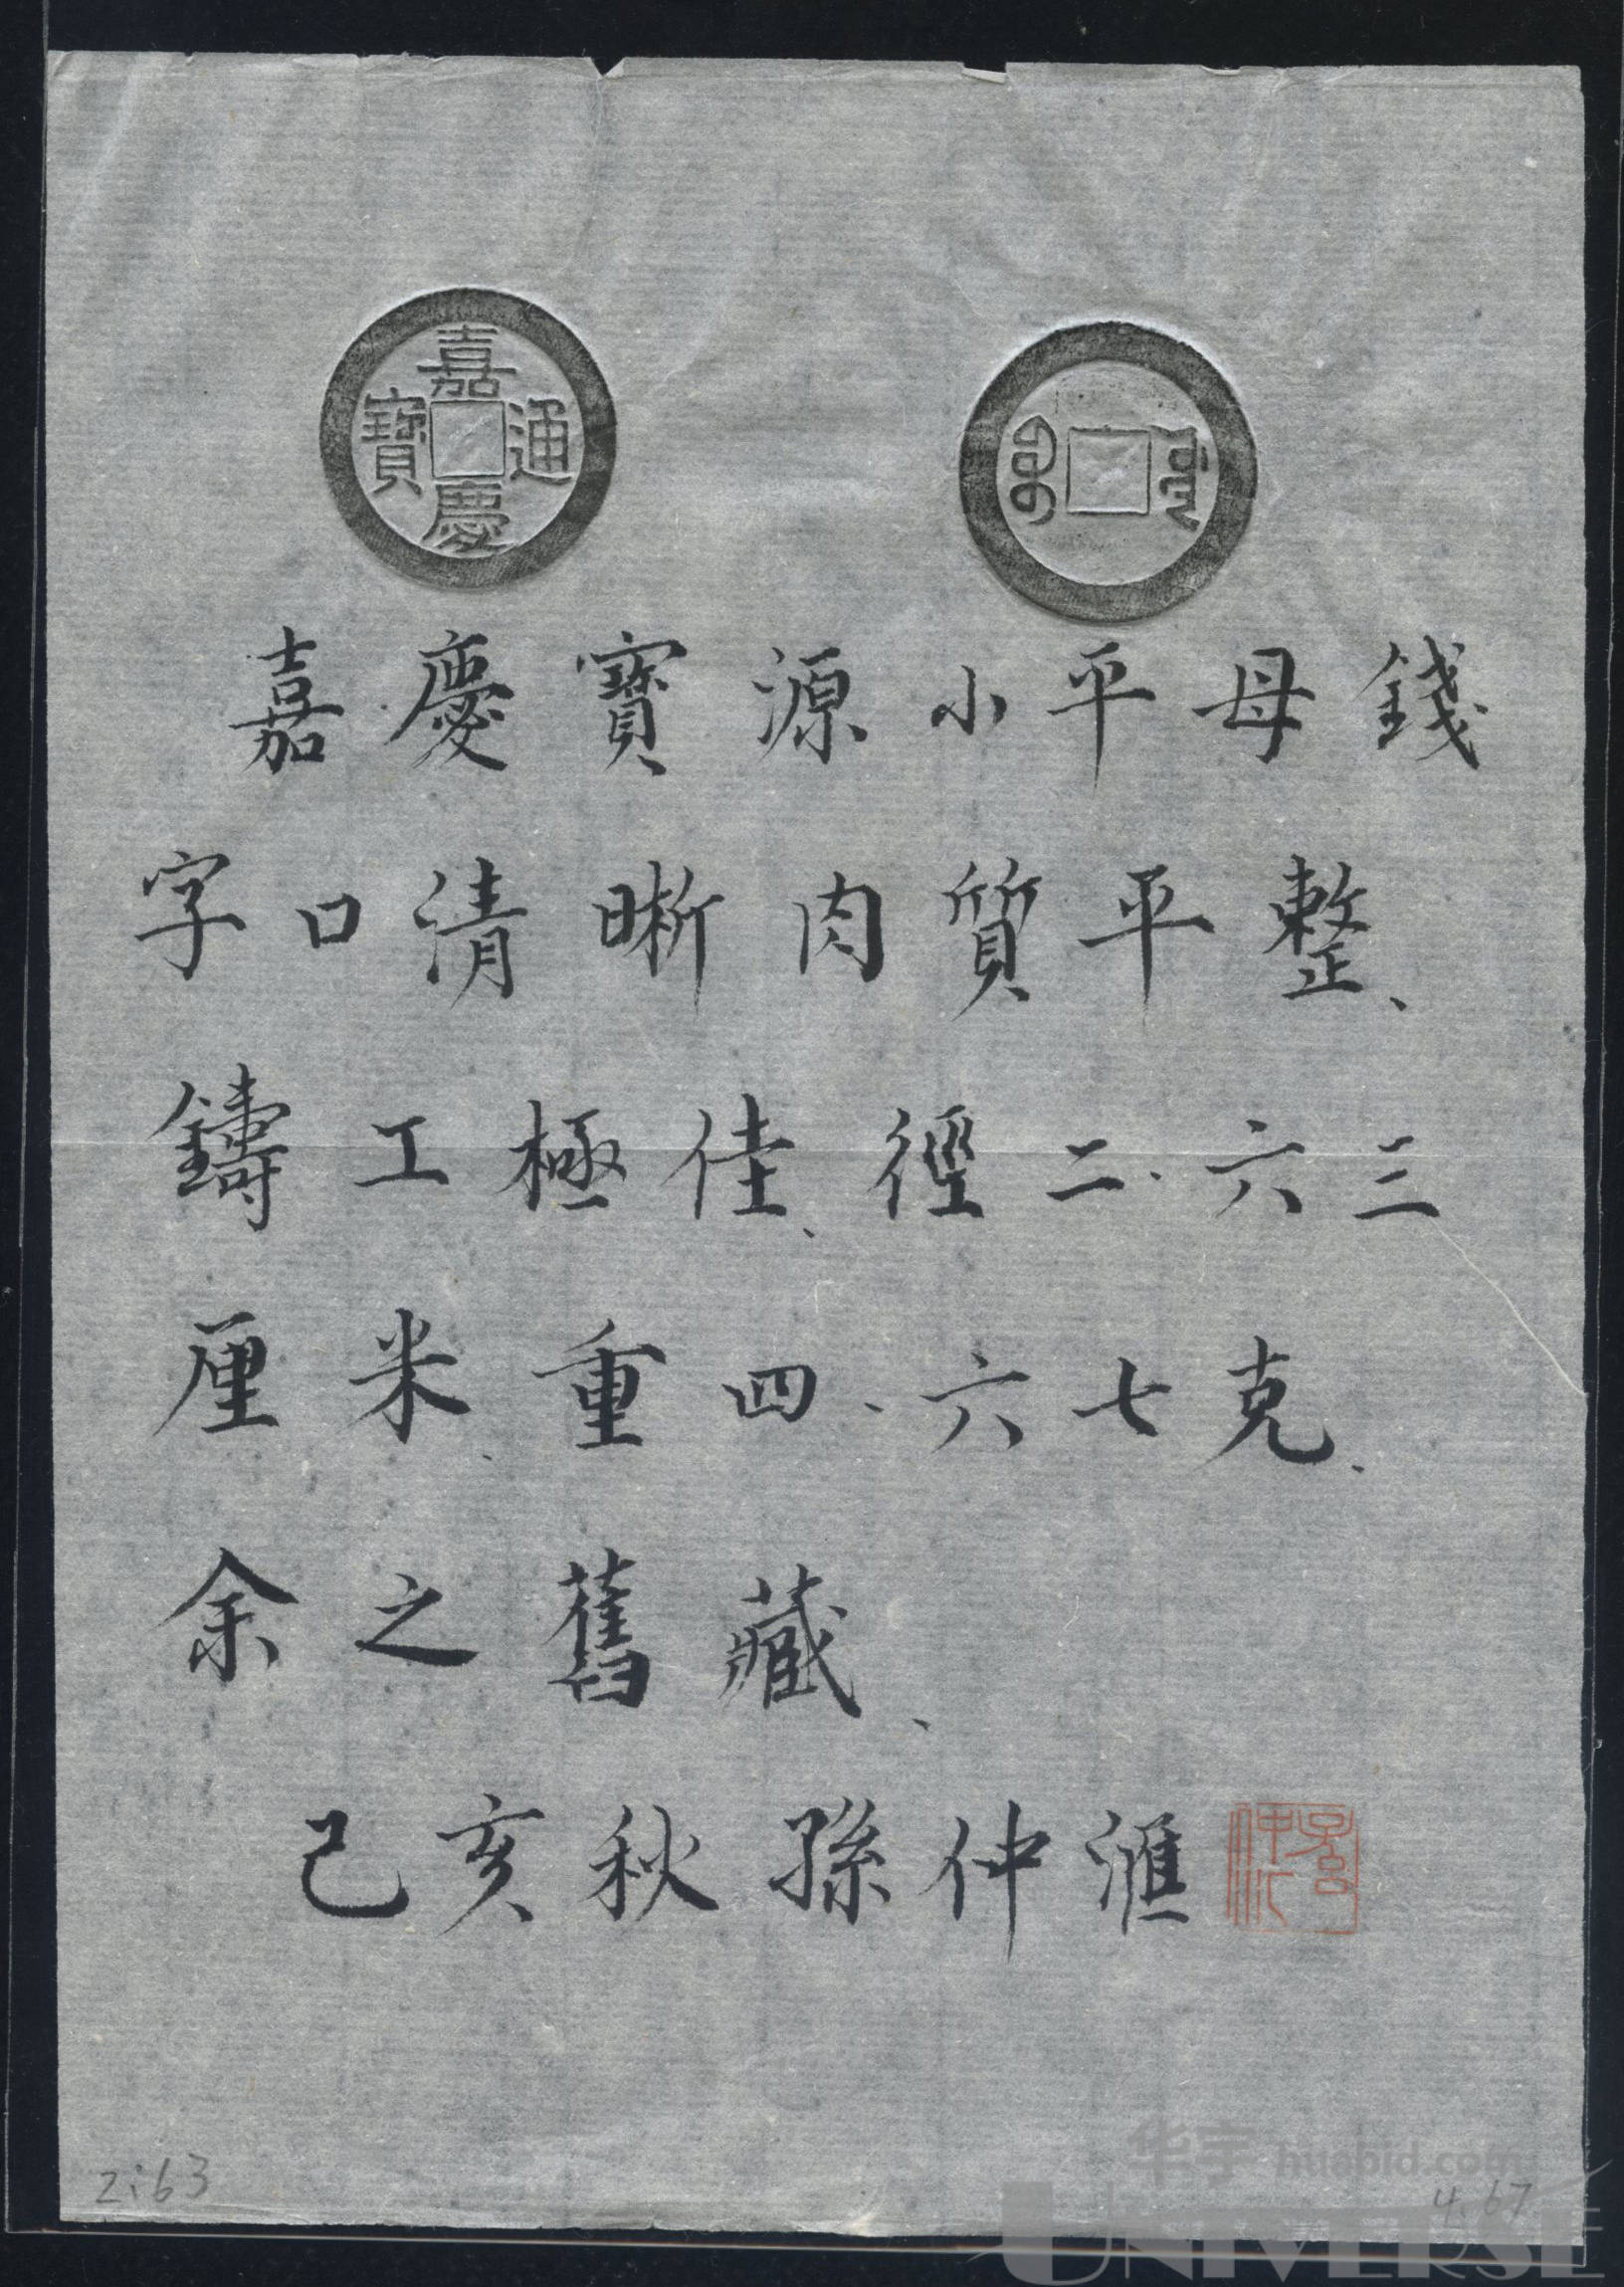 嘉慶通寶
嘉慶寶源小平母錢
字口清晰肉質平整、
鑄工極佳、徑二.六三
厘米、重四.六七克、
余之舊藏、
己亥秋孫仲滙
孫仲汇
2:63
4.67
华宇 huabid.com
UNIVERSE